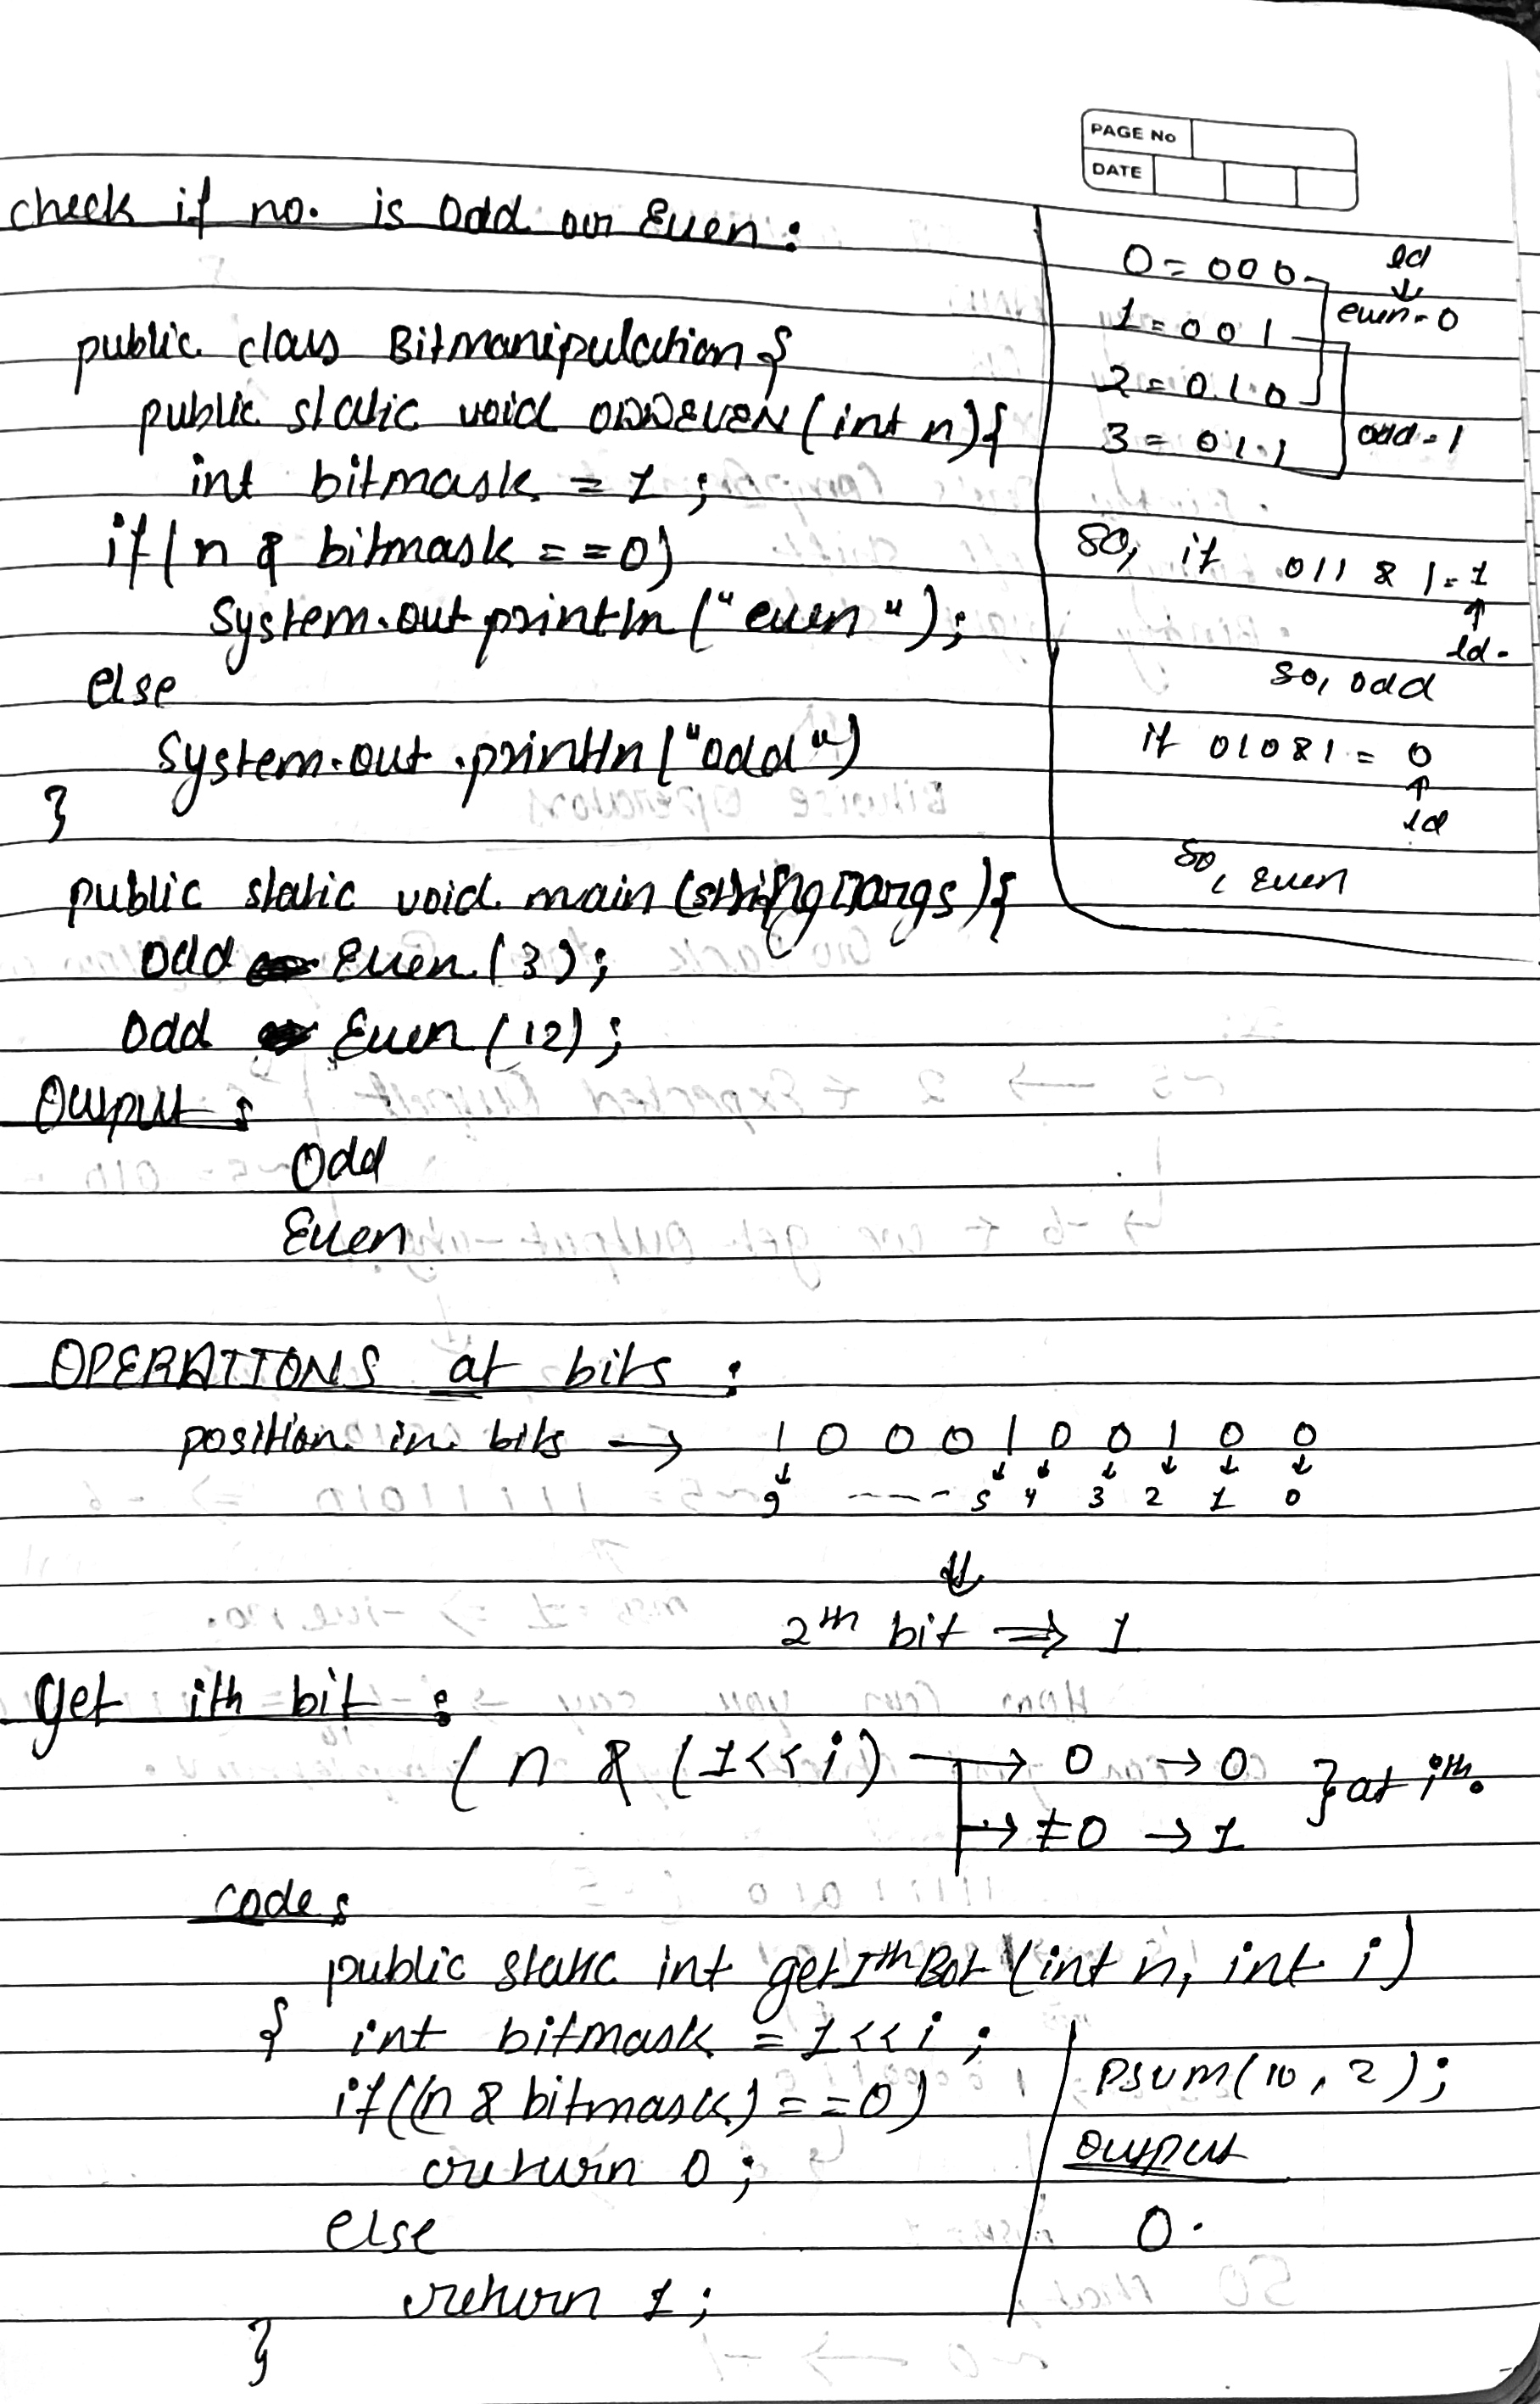 PAGE No
DATE
check if no. is Odd or Even :
public class Bitmanipulation {
public static void ODDEVEN (int n) {
int bitmask = 1 ;
if (n & bitmask == 0)
System.out println ("even");
else
System.out.println ("odd")
}
public static void main (string[] args) {
Odd Even (3) ;
Odd Even (12) ;
Output :
Odd
Even
0 = 000
1 = 001
2 = 010
3 = 011
ld
↓
even = 0
odd = 1
So, if 011 & 1 = 1
↑
ld.
so, odd
if 010 & 1 = 0
↑
ld
So, Even
OPERATIONS at bits :
position in bits → 1 0 0 0 1 0 0 1 0 0
9 ---- 5 4 3 2 1 0
⇓
2th bit ⇒ 1
Get ith bit :
( n & (1<<i) → 0 → 0 } at ith.
→ ≠0 → 1
code :
public static int getIthBot (int n, int i)
{ int bitmask = 1<<i ;
if ((n & bitmask) == 0)
return 0 ;
else
return 1 ;
}
Psum (10, 2) ;
output
0.